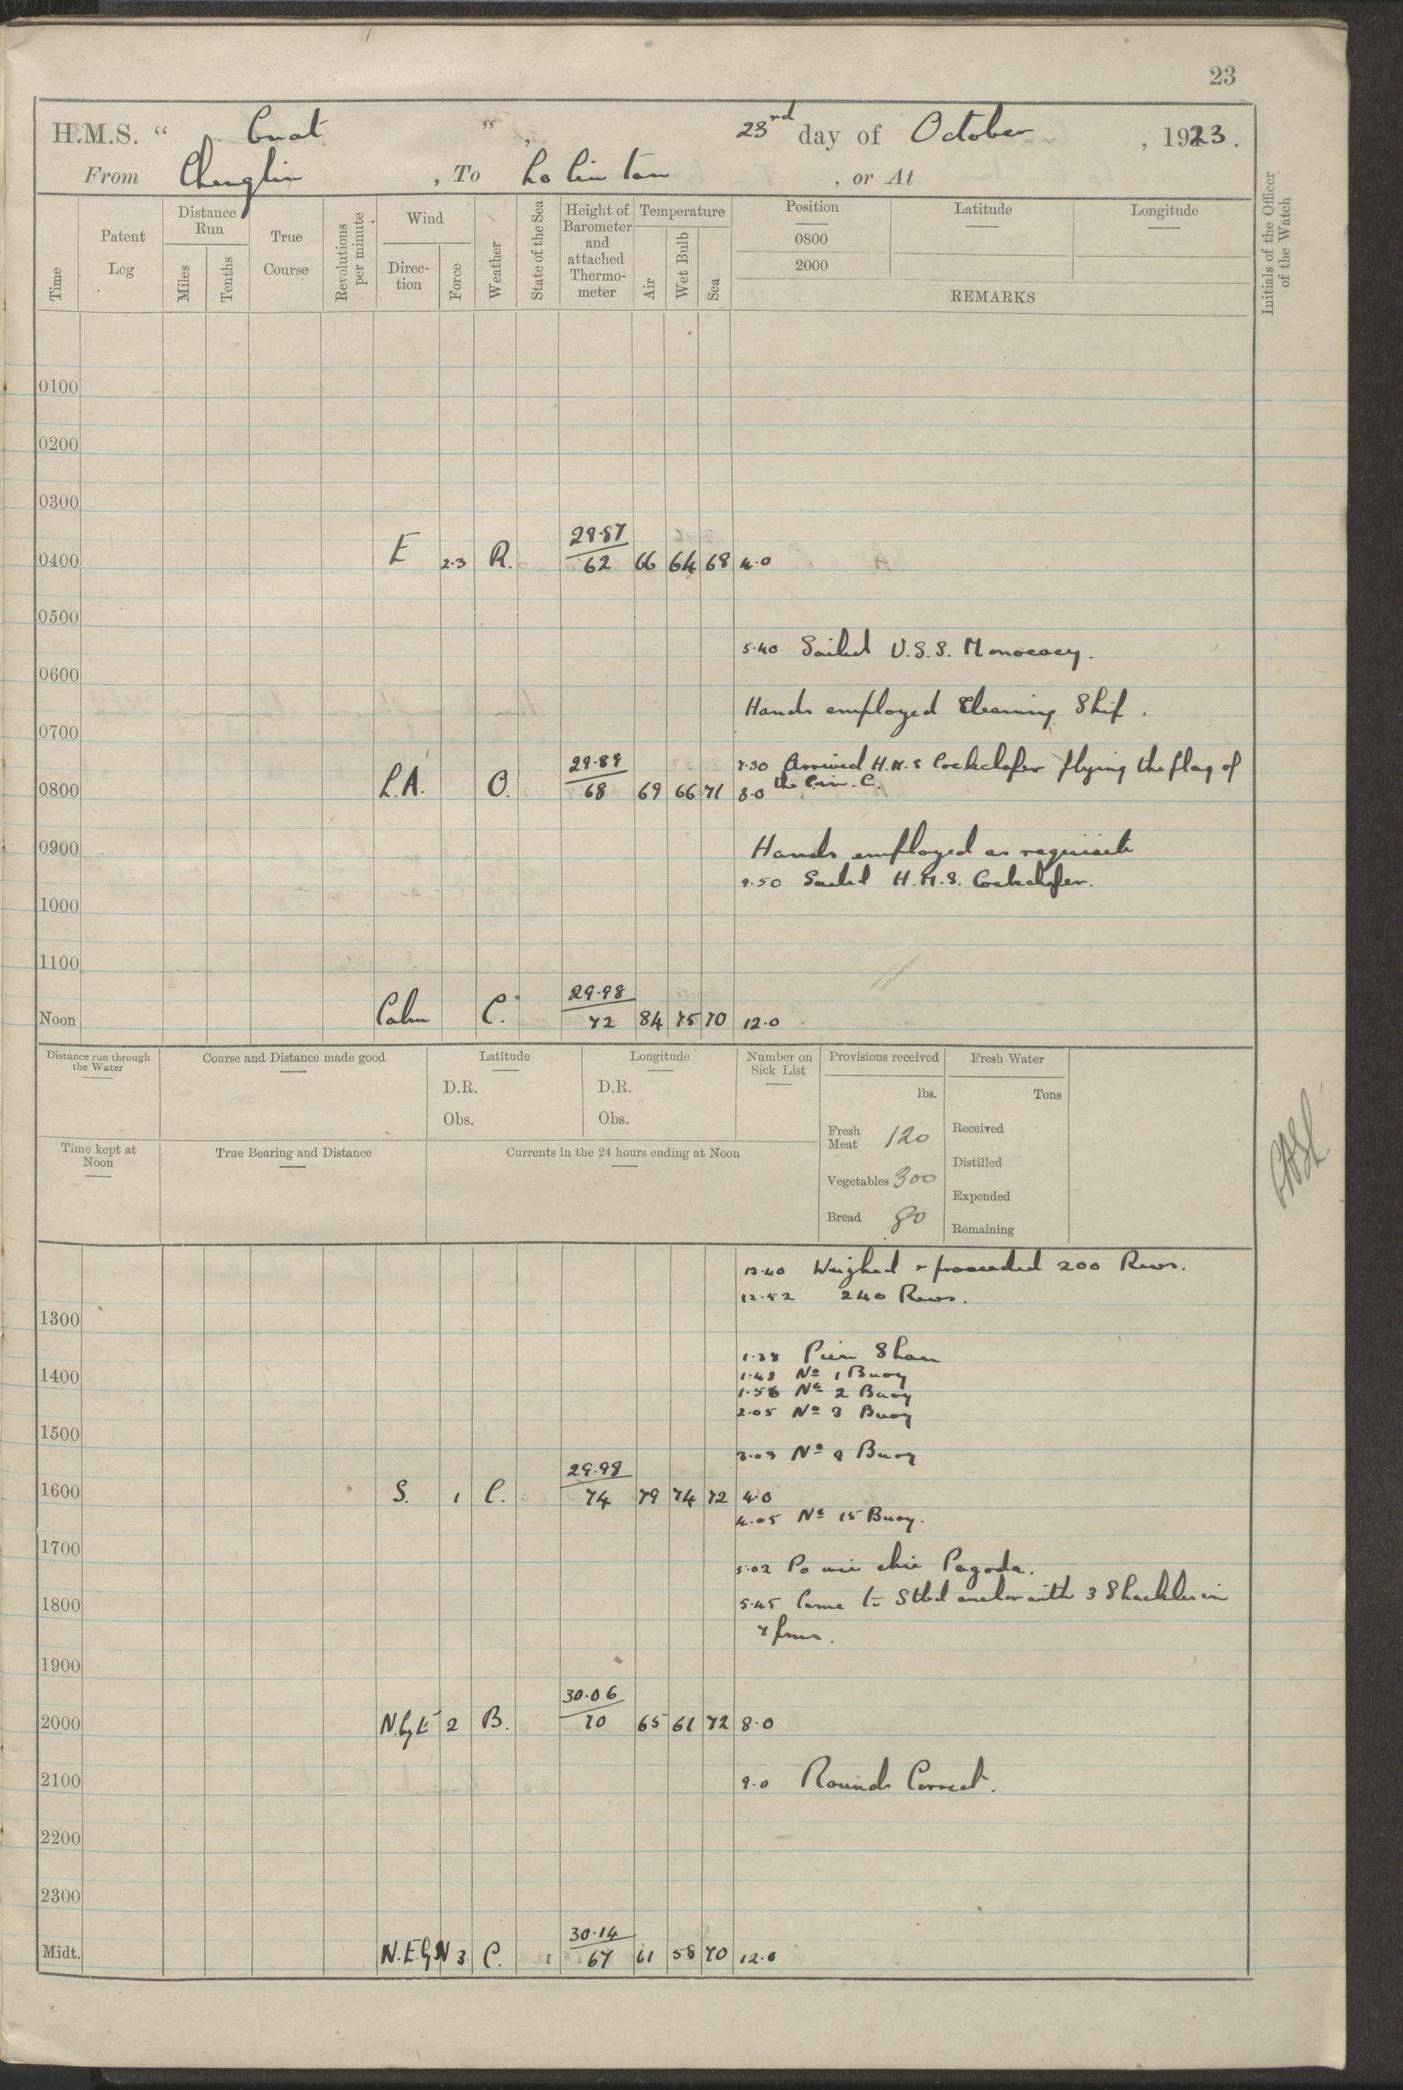 23
H.M.S. " Gnat " , 23rd day of October , 1923.
From Chenglin , To Lo lin tan , or At
Time
Patent Log
Distance Run
Miles
Tenths
True Course
Revolutions per minute
Wind
Direction
Force
Weather
State of the Sea
Height of Barometer and attached Thermometer
Temperature
Air
Wet Bulb
Sea
Position
0800
2000
Latitude
Longitude
REMARKS
Initials of the Officer of the Watch
0100
0200
0300
0400 E 2.3 R. 29.87 62 66 64 68 4.0
0500
5.40 Sailed U.S.S. Monocacy.
0600
Hands employed Cleaning Ship.
0700
7.30 Arrived H.M.S Cockchafer flying the flag of
the C.in.C.
0800 L.A. O. 29.89 68 69 66 71 8.0
0900 Hands employed as requisite
9.50 Sailed H.M.S. Cockchafer.
1000
1100
Noon Calm C. 29.98 72 84 75 70 12.0
Distance run through the Water
Course and Distance made good
Latitude
D.R.
Obs.
Longitude
D.R.
Obs.
Number on Sick List
Provisions received
lbs.
Fresh Meat 120
Vegetables 300
Bread 80
Fresh Water
Tons
Received
Distilled
Expended
Remaining
Time kept at Noon
True Bearing and Distance
Currents in the 24 hours ending at Noon
12.40 Weighed & proceeded 200 Revs.
12.52 240 Revs.
1300
1.38 Shan
1400 1.48 No 1 Buoy
1.56 No 2 Buoy
2.05 No 3 Buoy
1500
3.09 No 9 Buoy
1600 S. 1 C. 29.98 74 79 74 72 4.0
4.05 No 15 Buoy.
1700
5.02 Pagoda.
1800 5.45 Came to Stbd anchor with 3 Shackles in
7 fms.
1900
2000 N.by E 2 B. 30.06 70 65 61 72 8.0
2100 9.0 Rounds Correct.
2200
2300
Midt. N.E by N 3 C. 30.14 67 61 58 70 12.0